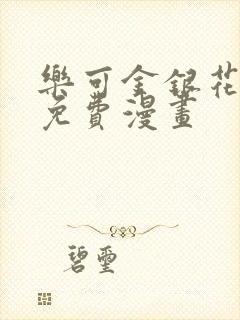 樂可金銀花
免費漫畫
碧璽